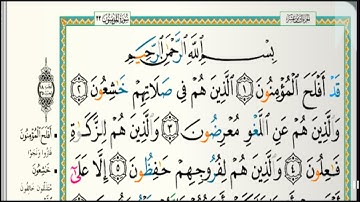 سُورَةُ المُؤْمِنُونَ ٢٣
بِسْمِ ٱللَّهِ ٱلرَّحْمَٰنِ ٱلرَّحِيمِ
قَدْ أَفْلَحَ ٱلْمُؤْمِنُونَ ١ ٱلَّذِينَ هُمْ فِى صَلَاتِهِمْ خَٰشِعُونَ ٢
وَٱلَّذِينَ هُمْ عَنِ ٱللَّغْوِ مُعْرِضُونَ ٣ وَٱلَّذِينَ هُمْ لِلزَّكَوٰةِ
فَٰعِلُونَ ٤ وَٱلَّذِينَ هُمْ لِفُرُوجِهِمْ حَٰفِظُونَ ٥ إِلَّا عَلَىٰٓ
أَفْلَحَ الْمُؤْمِنُونَ
خَٰشِعُونَ